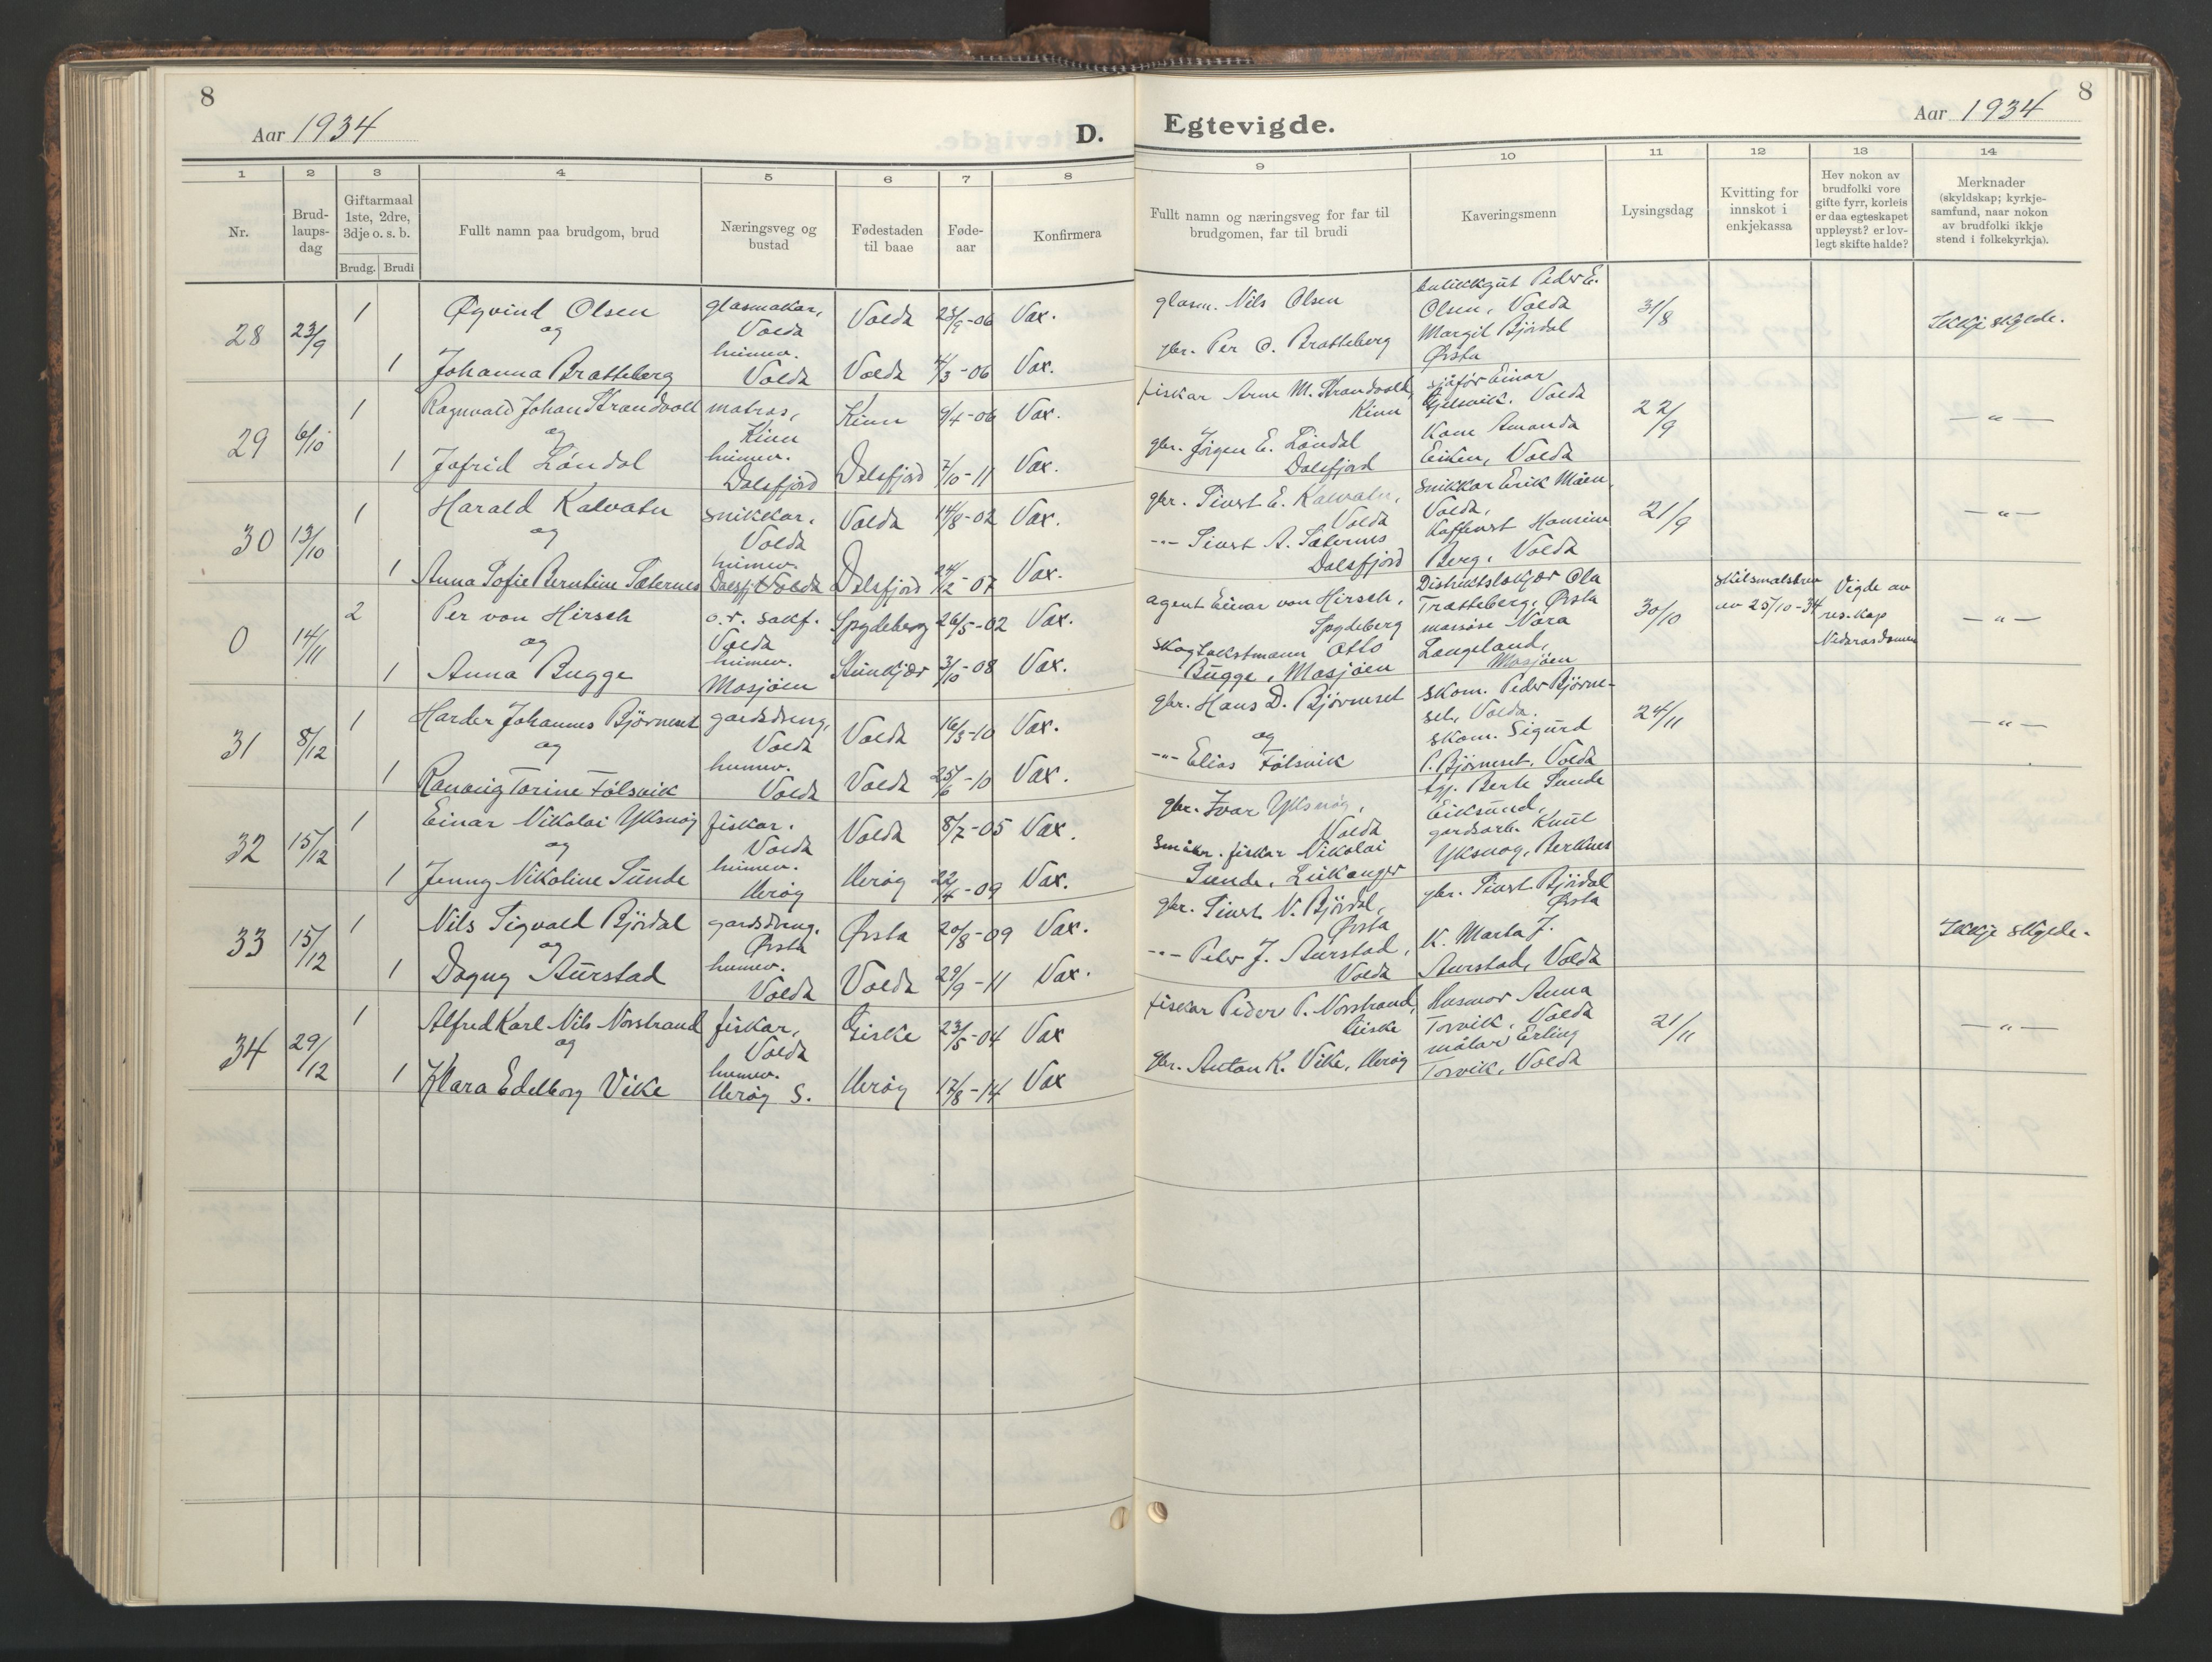 8
Aar 1934
D.
1 2 3 4 5 6 7 8
Nr.
Brud-
laups-
dag
Giftarmaal
1ste, 2dre,
3dje o. s. b.
Brudg. Brudi
Fullt namn paa brudgom, brud
Næringsveg og
bustad
Fødestaden
til baae
Føde-
aar
Konfirmera
28 23/9 1 Øyvind Olsen glasmakar, Volda Volda 23/9-06 Vax.
og
1 Johanna Bratteberg heimev. Volda Volda 4/3-06 Vax.
29 6/10 1 Ragnvald Johan Strandvoll matros, Kinn Kinn 9/4-06 Vax.
og
1 Jofrid Løndal heimev. Dalsfjord Dalsfjord 7/10-11 Vax.
30 13/10 1 Harald Kalvatn snikkar. Volda Volda 14/8-02 Vax.
og
1 Anna Sofie Berntine Sæternes heimev. Dalsfj & Volda Dalsfjord 24/12-07 Vax.
0 14/11 2 Per von Hirsch o.r. sakf. Volda Spydeberg 26/5-02 Vax.
og
1 Anna Bugge heimev. Mosjøen Steinkjær 3/10-08 Vax.
31 8/12 1 Harder Johannes Bjørneset gardsdreng, Volda Volda 16/3-10 Vax.
og
1 Ranveig Torine Følsvik heimev. Volda Volda 25/6-10 Vax.
32 15/12 1 Einar Nikolai Yksnøy fiskar. Volda Volda 8/7-05 Vax.
og
1 Jenny Nikoline Sunde heimev. Herøy Herøy 22/4-09 Vax.
33 15/12 1 Nils Sigvald Bjørdal gardsdreng. Ørsta Ørsta 20/8-09 Vax.
og
1 Dagny Aurstad heimev. Volda Volda 29/9-11 Vax.
34 29/12 1 Alfred Karl Nils Norstrand fiskar, Volda Giske 23/5-04 Vax
og
1 Klara Edelborg Vike heimev. Herøy S. Herøy 17/8-14 Vax
8
Egtevigde.
Aar 1934
9 10 11 12 13 14
Fullt namn og næringsveg for far til
brudgomen, far til brudi
Kaveringsmenn
Lysingsdag
Kvitting for
innskot i
enkjekassa
Hev nokon av
brudfolki vore
gifte fyrr, korleis
er daa egteskapet
uppløyst? er lov-
legt skifte halde?
Merknader
(skyldskap; kyrkje-
samfund, naar nokon
av brudfolki ikkje
stend i folkekyrkja).
glasm. Nils Olsen butikkgut Peder E. Olsen, Volda 31/8 Ikkje skylde.
gbr. Per O. Bratteberg Margit Bjørdal Ørsta
fiskar Arne M. Strandvoll, Kinn sjåfør Einar Gjelsvik. Volda 22/9 — " —
gbr. Jørgen E. Løndal Dalsfjord Kone Amanda Eiken, Volda
gbr. Sivert E. Kalvatn, Volda Snikkar Erik Måen, Volda, 21/9 — " —
-"- Sivert A. Sæternes Dalsfjord Kaffevert Hansine Berg, Volda
agent Einar von Hirsch, Spydeberg Distriktslækjar Ola Trætteberg, Ørsta 30/10 Skilsmålsbrev av 25/10-34 Vigde av res. kap Nidarosdomen — " —
Skogtakstmann Otto Bugge, Mosjøen massøse Nora Langeland, Mosjøen
gbr. Hans D. Bjørneset skom. Peder Bjørne-
set, Volda. 24/11 — " —
og
-"- Elias Følsvik skom. Sigurd P. Bjørneset, Volda
gbr. Ivar Yksnøy, Volda tgj. Berte Sunde Eiksund,
Småbr. fiskar Nikolai Sunde, Leikanger gardsarb. Knut Yksnøy, Berknes
gbr. Sivert N. Bjørdal, Ørsta gbr. Sivert Bjørdal Ørsta Ikkje skylde.
-"- Peder J. Aurstad, Volda K. Marta J. Aurstad, Volda
fiskar Peder P. Norstrand, Giske Husmor Anna Torvik, Volda 21/11 — " —
gbr. Anton K. Vike, Herøy målar Erling Torvik, Volda